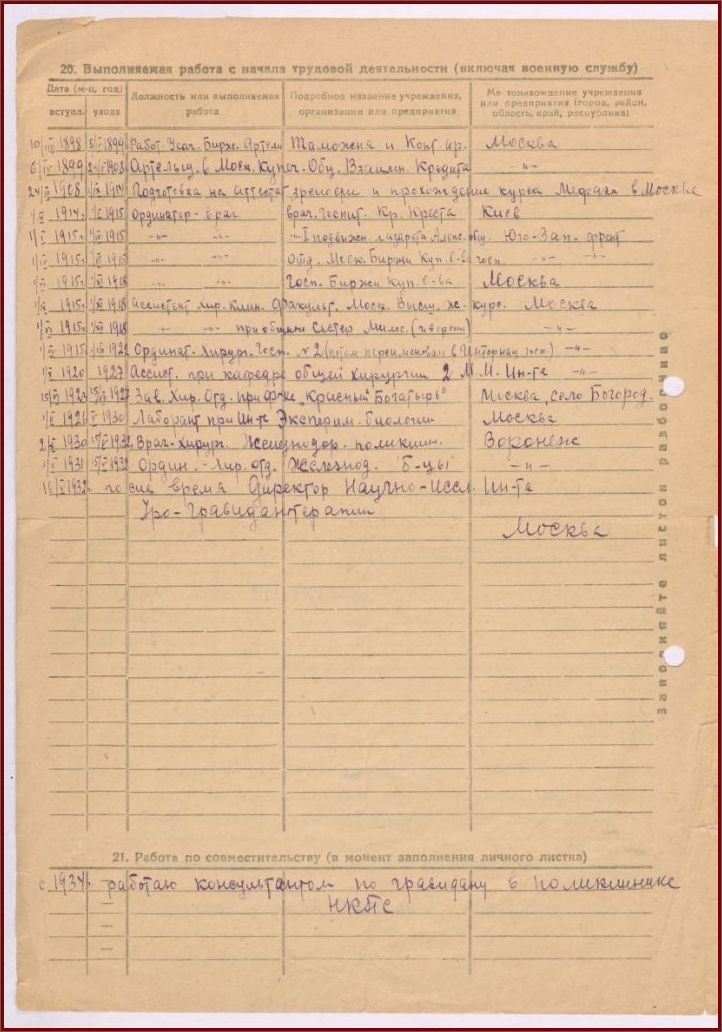 20. Выполняемая работа с начала трудовой деятельности (включая военную службу)
Дата (м-ц, год)
вступл. ухода
Должность или выполняемая работа
Подробное название учреждения, организации или предприятия
Местонахождение учреждения или предприятия (город, район, область, край, республика)
1898 1899 Работ. Бирж. Артели Таможня и Москва
1899 1908 Артельщ. в Моск. Купеч. Общ. Взаимн. Кредита -"-
1908 1914 Подготовка на аттестат зрелости и прохождение курса Медфака в Москве
1914 1915 Ординатор-врач врач. Госпит. Кр. Креста Киев
1915 1915 -"- -"- I подвижн. лазарета Алекс. общ. Юго-Зап. фронт
1915 1915 -"- -"- Отд. Моск. Биржи Куп. о-ва госп. -"- -"-
1915 1918 -"- -"- Госп. Биржи Куп. о-ва Москва
1915 1918 Ассистент хир. клин. факульт. Моск. Высш. ж. курс. Москва
1915 1918 -"- -"- при общине Сестер Милос. -"-
1915 1922 Ординат. Хирург. Госп. №2 (потом переименован в -"-
1920 1927 Ассист. при кафедре общей хирургии 2 М.М. Ин-та -"-
1923 1927 Зав. Хир. Отд. при ф-ке „Красный Богатырь" Москва, село Богород.
1926 1930 Лаборант при Ин-те Эксперим. биологии Москва
1930 1932 Врач-Хирург. Железнодор. поликлин. Воронеж
1931 1932 Ордин. - Хир. отд. Железнод. Б-цы -"-
1932 по сие время Директор Научно-Иссл. Ин-та
Уро-Гравиданотерапии
Москва
заполняйте листок разборчиво
21. Работа по совместительству (в момент заполнения личного листка)
с 1934 работаю консультантом по гравидану в поликлинике
НКПС